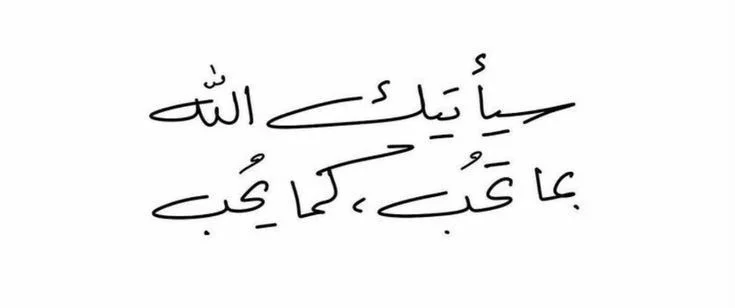 سيأتيك الله
بما تَحُب، كما يُحب